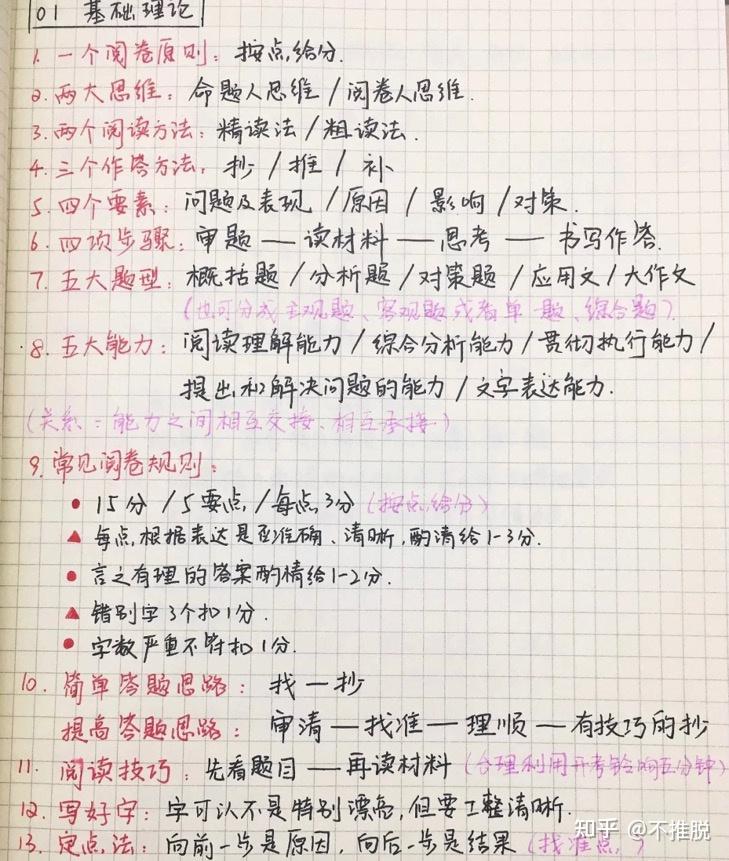 01 基础理论
1. 一个阅卷原则：按点给分.
2. 两大思维：命题人思维 / 阅卷人思维.
3. 两个阅读方法：精读法 / 粗读法.
4. 三个作答方法：抄 / 推 / 补
5. 四个要素：问题及表现 / 原因 / 影响 / 对策.
6. 四项步骤：审题 — 读材料 — 思考 — 书写作答.
7. 五大题型：概括题 / 分析题 / 对策题 / 应用文 / 大作文
(也可分成主观题、客观题或者单一题、综合题)
8. 五大能力：阅读理解能力 / 综合分析能力 / 贯彻执行能力 /
提出和解决问题的能力 / 文字表达能力.
(关系：能力之间相互交接、相互承接)
9. 常见阅卷规则：
• 15分 / 5要点 / 每点3分 (按点给分)
▲ 每点根据表达是否准确、清晰，酌清给1-3分.
• 言之有理的答案酌情给1-2分.
▲ 错别字3个扣1分.
• 字数严重不符扣1分.
10. 简单答题思路：找—抄
提高答题思路：审清—找准—理顺—有技巧的抄
11. 阅读技巧：先看题目—再读材料 (合理利用开考铃响五分钟)
12. 写好字：字可以不是特别漂亮，但要工整清晰.
13. 定点法：向前一步是原因，向后一步是结果 (找准点)
知乎 @不推脱